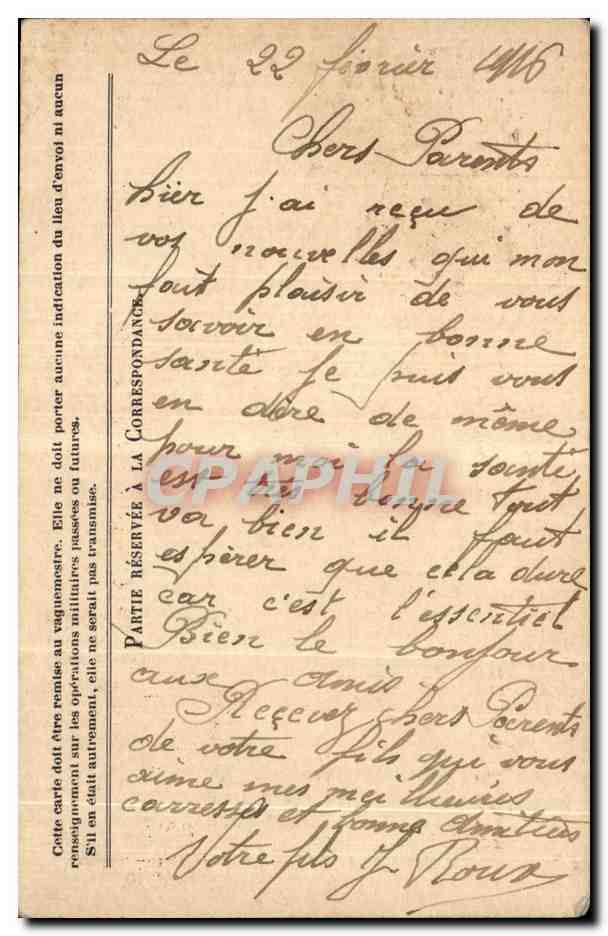 Le 22 février 1916
Chers Parents
hier j'ai reçu de
vos nouvelles qui mon
fait plaisir de vous
savoir en bonne
santé je puis vous
en dire de même
pour moi la santé
est très bonne tout
va bien il faut
espèrer que cela dure
car c'est l'essentiel
Bien le bonjour
aux amis.
Reçevez chers Parents
de votre fils qui vous
aime mes meilleures
carresses et bonne amitiès
Votre fils J Roux
PARTIE RÉSERVÉE À LA CORRESPONDANCE.
Cette carte doit être remise au vaguemestre. Elle ne doit porter aucune indication du lieu d'envoi ni aucun
renseignement sur les opérations militaires passées ou futures.
S'il en était autrement, elle ne serait pas transmise.
CPAPHIL